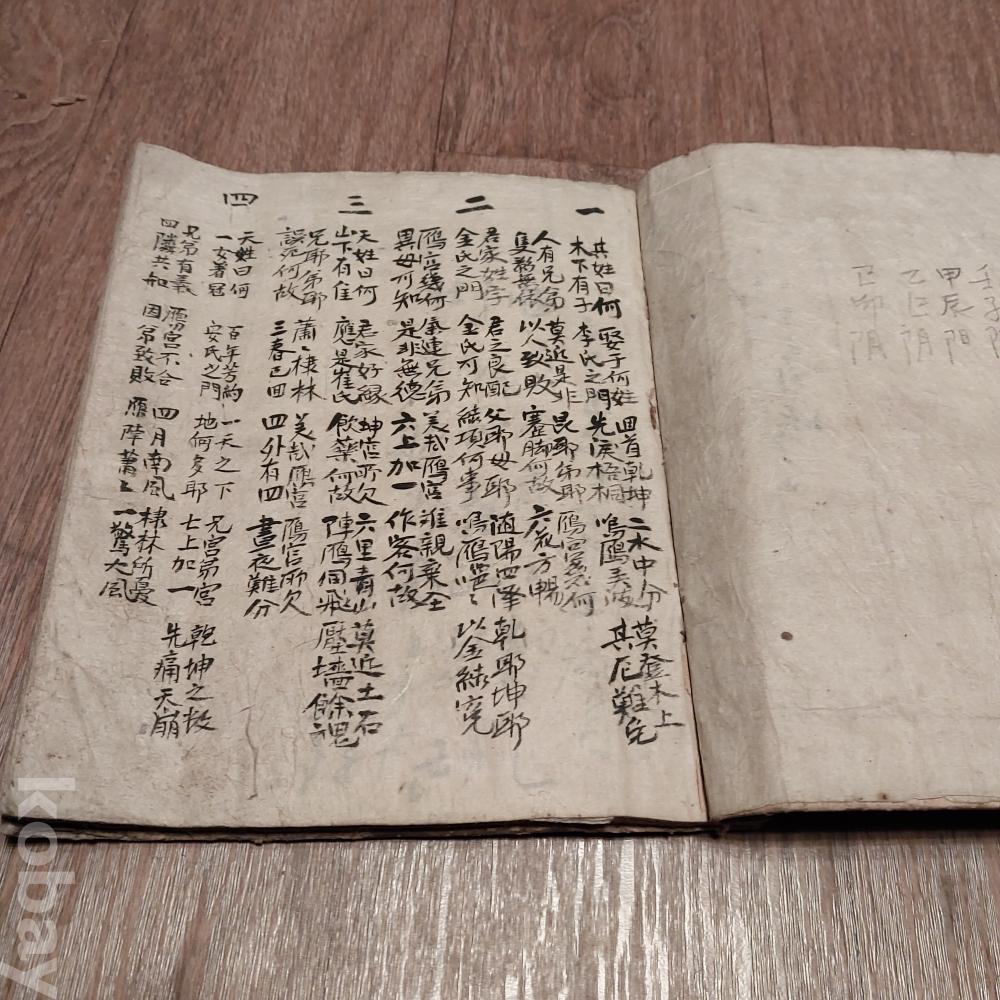 壬子
甲辰阴
乙巳阴
己卯阴
一
其姓曰何 娶于何姓 回首乾坤 二水中分 莫登木上
木下有子 李氏之門 先淚梧桐 鳴鴈 其厄難免
人有兄弟 莫近是非 昆耶弟耶 鴈宮幾何
隻影無依 以人致敗 蹇脚何故 六花方暢
二
君家姓字 君之良配 父耶母耶 随陽四澤 乾耶坤耶
金氏之門 金氏可知 結項何事 鳴鴈 以金寃
鴈宮幾何 氣連兄弟 美哉鴈宮 雖親棄全
異母可知 是非無德 六上加一 作客何故
三
天姓曰何 君家好緣 坤宮所欠 六里青山 莫近土石
山下有隹 應是崔氏 飮藥何故 陣鴈回飛 壓墻餘魂
兄耶弟耶 蕭〻棣林 美哉鴈宮 鴈宮所欠
誤死何故 三春已回 四外有四 晝夜難分
四
天姓曰何 百年芳約 一天之下 兄宮弟宮 乾坤之
一女著冠 安氏之門 地何多耶 七上加一 先痛天崩
兄弟有義 鴈宮不合 四月南風 棣林所憂
四隣共知 因弟致敗 鴈陣蕭〻 一驚大風
kobay